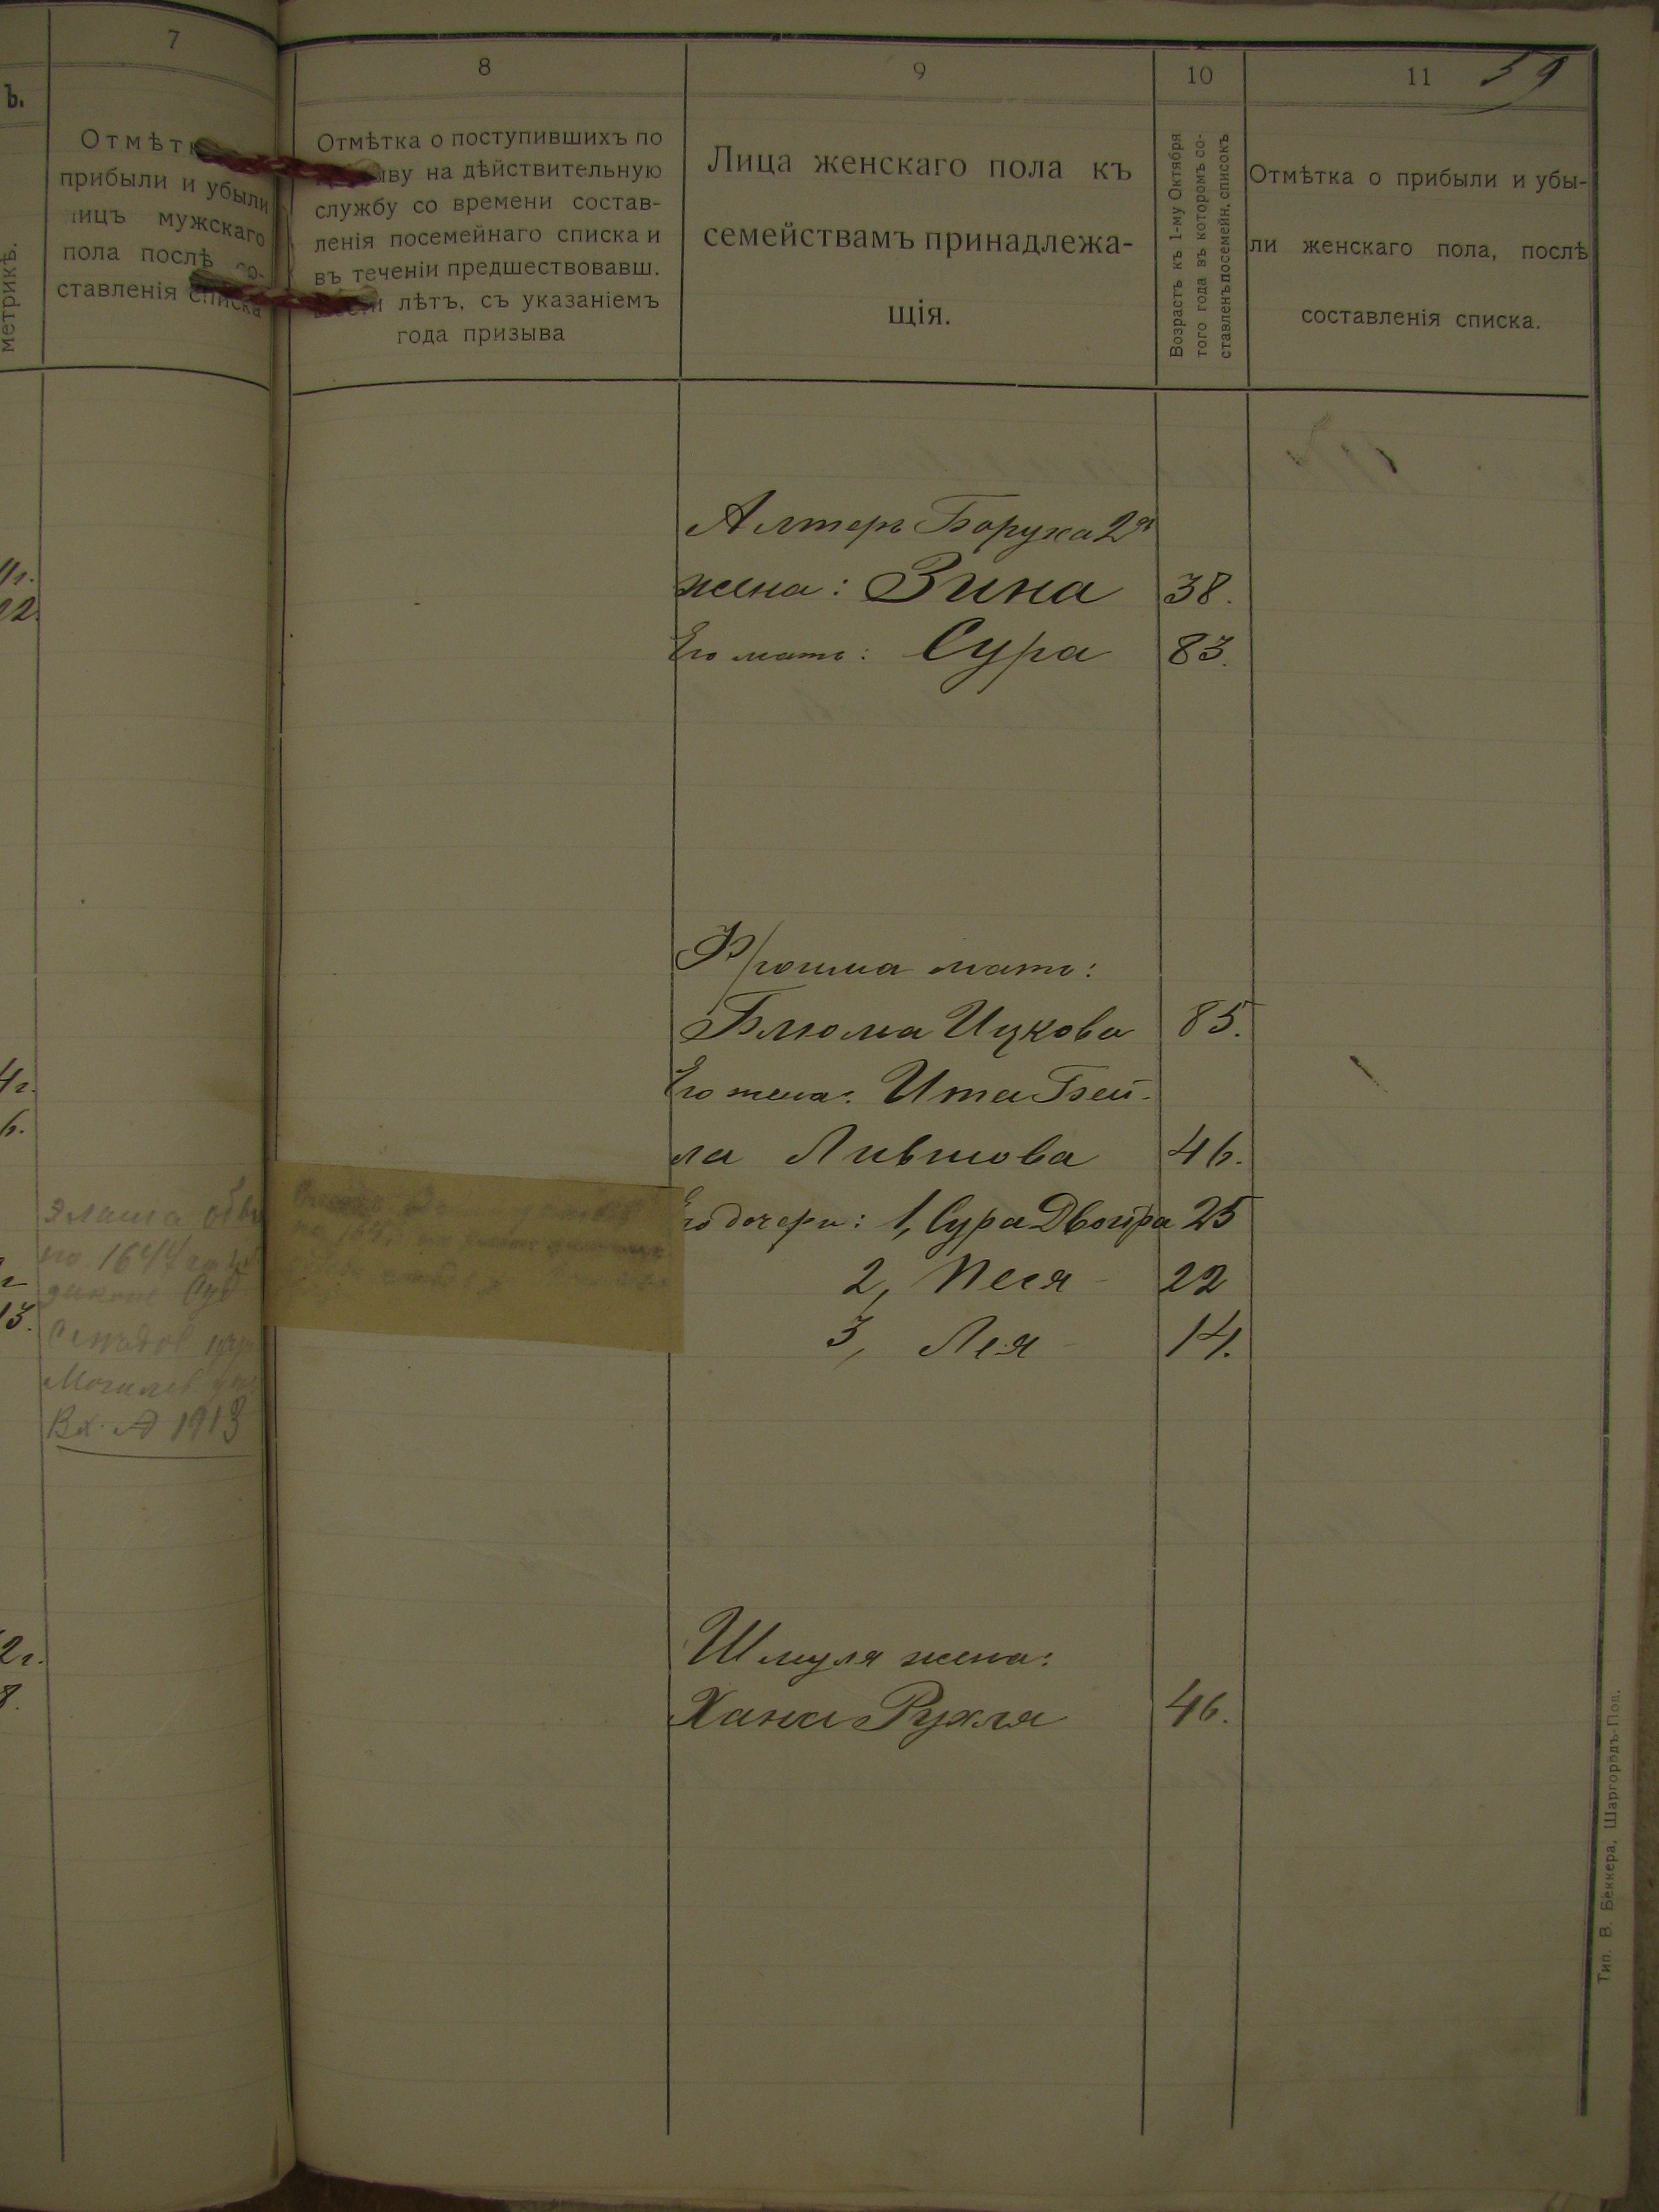 7
Отмѣт
прибыли и убыли
лицъ мужскаго
пола послѣ со-
ставленія списка
метрикѣ.
ь.
по 1644
Могилев
Вх. 1913
8
Отмѣтка о поступившихъ по
на дѣйствительную
службу со времени состав-
ленія посемейнаго списка и
въ теченіи предшествовавш.
лѣтъ, съ указаніемъ
года призыва
9
Лица женскаго пола къ
семействамъ принадлежа-
щія.
10
Возрастъ къ 1-му Октября
того года въ которомъ со-
ставленъ посемейн. списокъ
11
59
Отмѣтка о прибыли и убы-
ли женскаго пола, послѣ
составленія списка.
Алтеръ Боруха 2я
жена: Зина 38.
Его мать: Сура 83.
мать:
Блюма Ицкова 85.
Его жена: Ита Бей-
ла Лившова 46.
Его дочери: 1, Сура Двойра 25
2, Песя 22
3, Лея 14.
Шмуля жена:
Хана Рухля 46.
Тип. В. Беккера, Шаргородъ-Под.